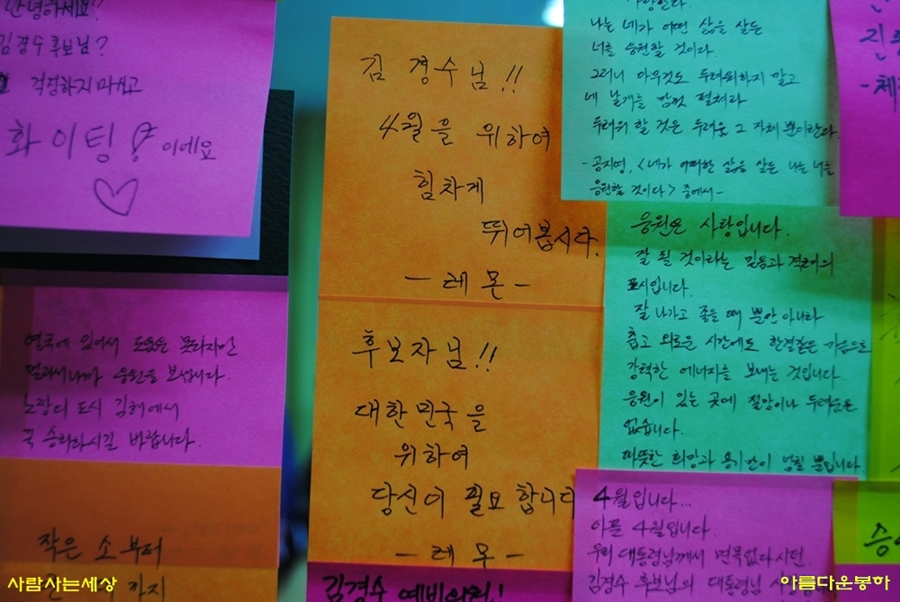 안녕하세요!!
김경수 후보님?
걱정하지 마시고
화이팅! 이에요
영국에 있어서 도움은 못되지만
멀리서나마 응원을 보냅니다.
노랑의 도시 김해에서
꼭 승리하시길 바랍니다.
작은 소부터
까지
김경수님!!
4월을 위하여
힘차게
뛰어봅시다.
- 레몬 -
후보자님!!
대한민국을
위하여
당신이 필요합니다
- 레몬 -
김경수 예비의원!
나는 네가 어떤 삶을 살든
너를 응원할 것이다
그러니 아무것도 두려워하지 말고
네 날개를 맘껏 펼쳐라
두려워 할 것은 두려움 그 자체 뿐이란다
- 공지영, <네가 어떠한 삶을 살든 나는 너를
응원할 것이다> 중에서 -
응원은 사랑입니다.
잘 될 것이라는 믿음과 격려의
표시입니다.
잘 나가고 좋을 때 뿐만 아니라
춥고 외로운 시간에도 한결같은 마음으로
강력한 에너지를 보내는 것입니다.
응원이 있는 곳에 절망이나 두려움은
없습니다.
따뜻한 희망과 용기만이 넘칠 뿐입니다
4월입니다...
아픈 4월입니다.
우리 대통령님께서 면목없다시던.
김경수 후보님의 대통령님
사람사는세상
아름다운봉하